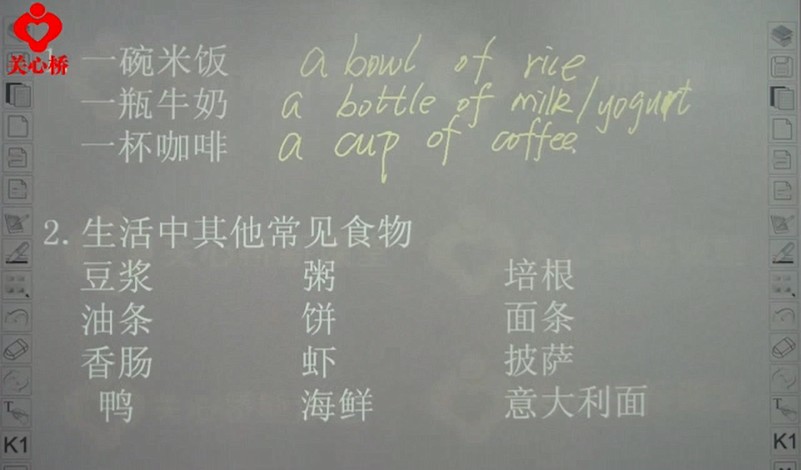 关心桥
一碗米饭 a bowl of rice
一瓶牛奶 a bottle of milk/yogurt
一杯咖啡 a cup of coffee.
2.生活中其他常见食物
豆浆 粥 培根
油条 饼 面条
香肠 虾 披萨
鸭 海鲜 意大利面
T
T
K1
K1